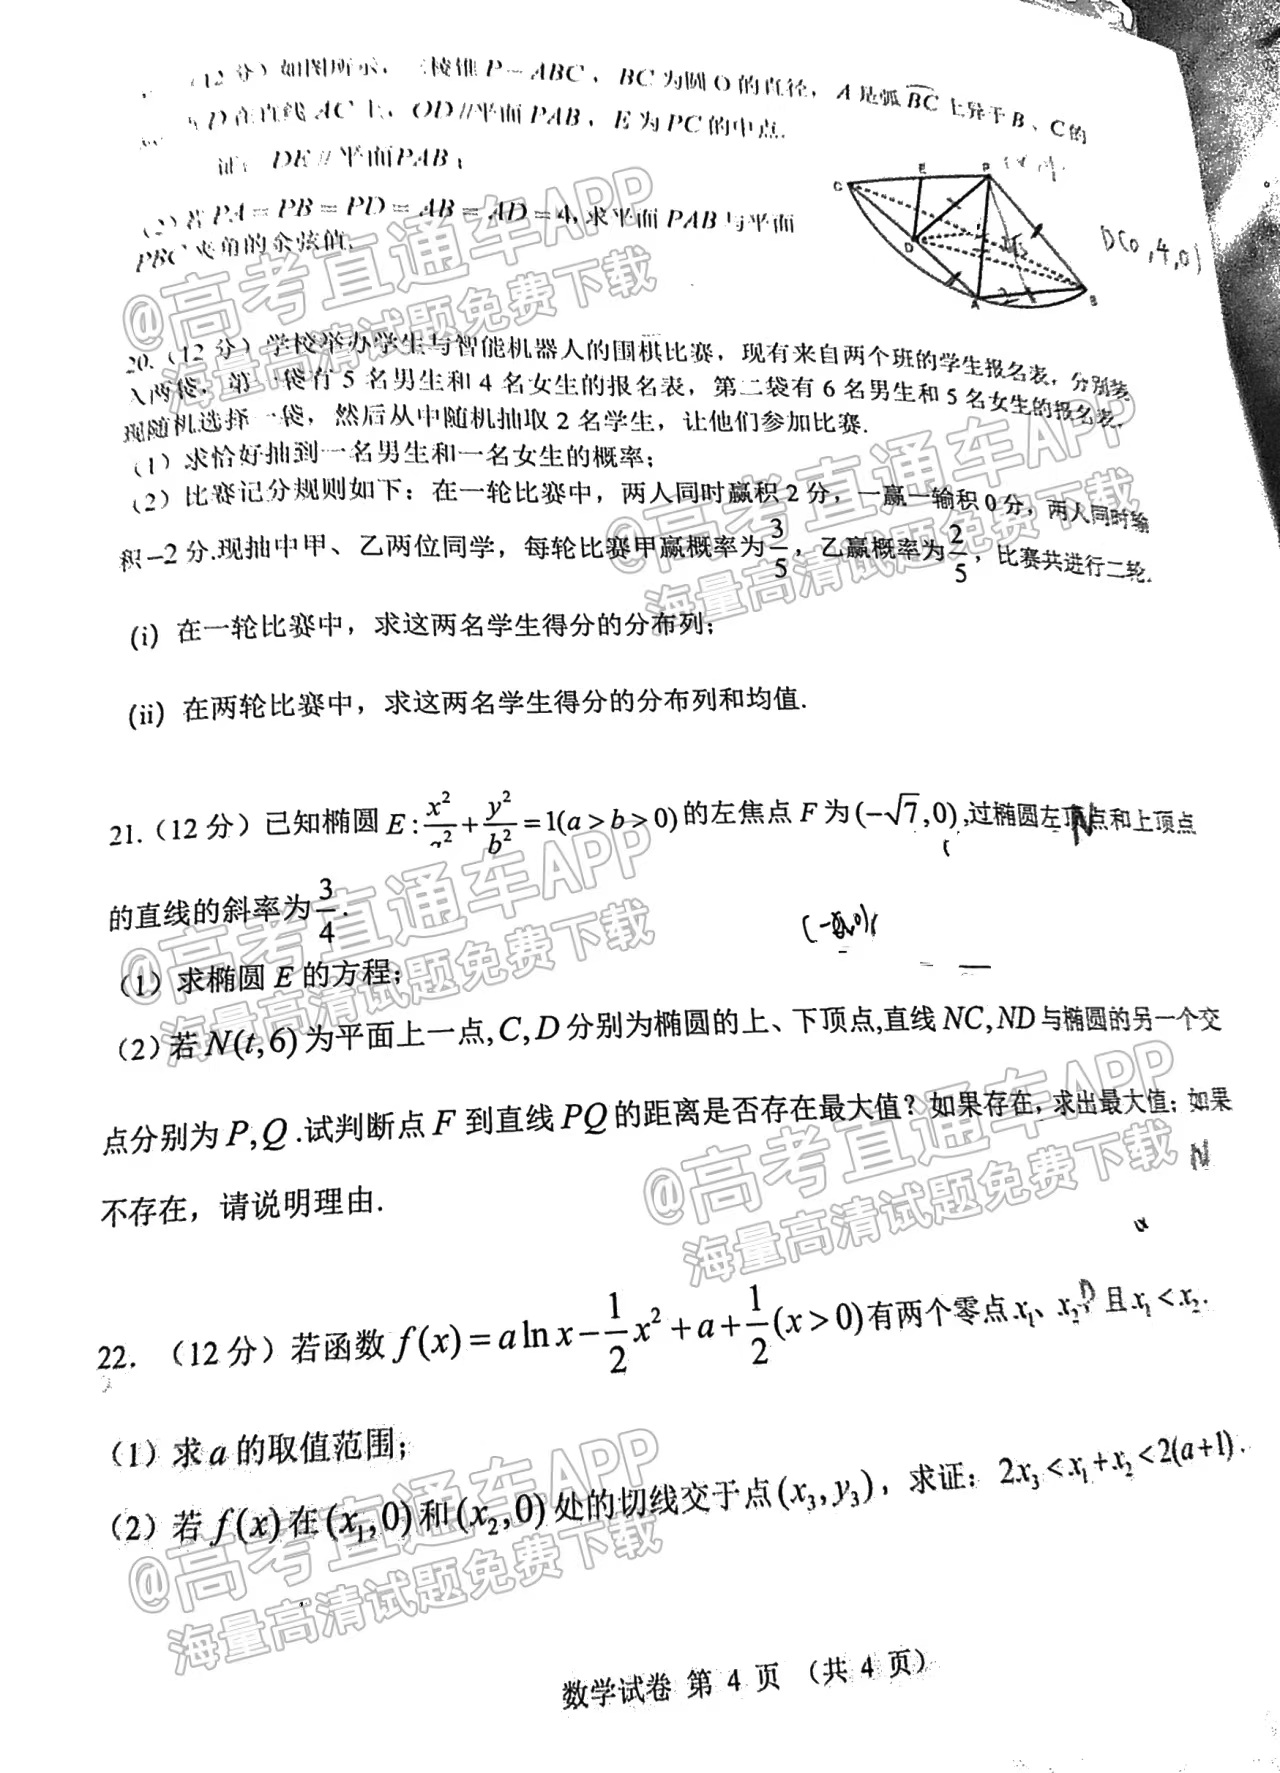 (12分)如图所示,三棱锥P-ABC,BC为圆O的直径,A是弧BC上异于B、C的
D在直线AC上,OD//平面PAB,E为PC的中点.
证:DE//平面PAB;
(2)若PA=PB=PD=AB=AD=4,求平面PAB与平面
PBC夹角的余弦值.
C E P D A B
D(0,4,0)
20.(12分)学校举办学生与智能机器人的围棋比赛,现有来自两个班的学生报名表,分别装
入两袋,第一袋有5名男生和4名女生的报名表,第二袋有6名男生和5名女生的报名表,
现随机选择一袋,然后从中随机抽取2名学生,让他们参加比赛.
(1)求恰好抽到一名男生和一名女生的概率;
(2)比赛记分规则如下:在一轮比赛中,两人同时赢积2分,一赢一输积0分,两人同时输
积-2分.现抽中甲、乙两位同学,每轮比赛甲赢概率为3/5,乙赢概率为2/5,比赛共进行二轮.
(i) 在一轮比赛中,求这两名学生得分的分布列;
(ii) 在两轮比赛中,求这两名学生得分的分布列和均值.
21.(12分)已知椭圆E:x²/a²+y²/b²=1(a>b>0)的左焦点F为(-√7,0),过椭圆左顶点和上顶点
的直线的斜率为3/4.
(1)求椭圆E的方程;
(2)若N(t,6)为平面上一点,C,D分别为椭圆的上、下顶点,直线NC,ND与椭圆的另一个交
点分别为P,Q.试判断点F到直线PQ的距离是否存在最大值?如果存在,求出最大值;如果
不存在,请说明理由.
22.(12分)若函数f(x)=alnx-1/2x²+a+1/2(x>0)有两个零点x₁、x₂,且x₁<x₂.
(1)求a的取值范围;
(2)若f(x)在(x₁,0)和(x₂,0)处的切线交于点(x₃,y₃),求证:2x₃<x₁+x₂<2(a+1).
数学试卷 第4页 (共4页)
@高考直通车APP
海量高清试题免费下载
@高考直通车APP
海量高清试题免费下载
@高考直通车APP
海量高清试题免费下载
@高考直通车APP
海量高清试题免费下载
@高考直通车APP
海量高清试题免费下载